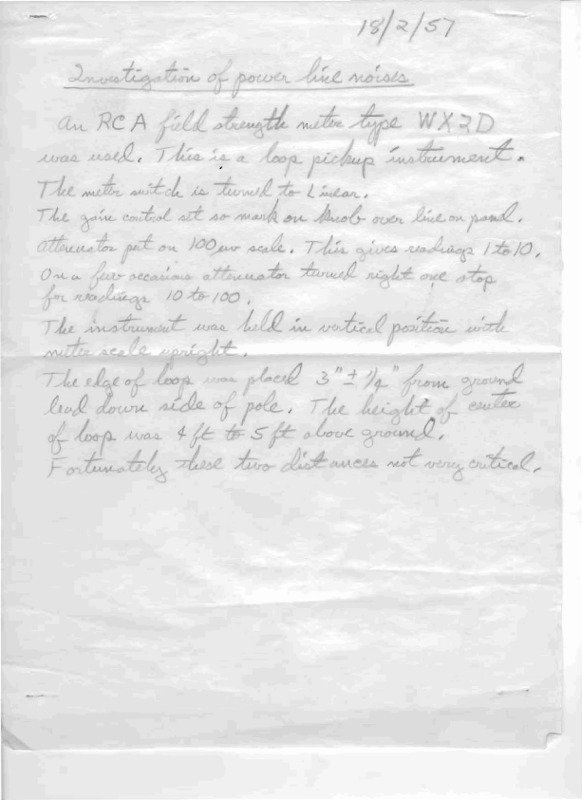 18/2/57
Investigation of power line noises
An RCA field strength meter type WX2D
was used. This is a loop pickup instrument.
The meter switch is turned to Linear.
The gain control set so mark on knob over line on panel.
Attenuator put on 100 scale. This gives readings 1 to 10.
On a few occasions attenuator turned right one stop
for readings 10 to 100.
The instrument was held in vertical position with
meter scale upright.
The edge of loop was placed 3" ± 1/2" from ground
lead down side of pole. The height of center
of loop was 4 ft to 5 ft above ground.
Fortunately these two distances not very critical.